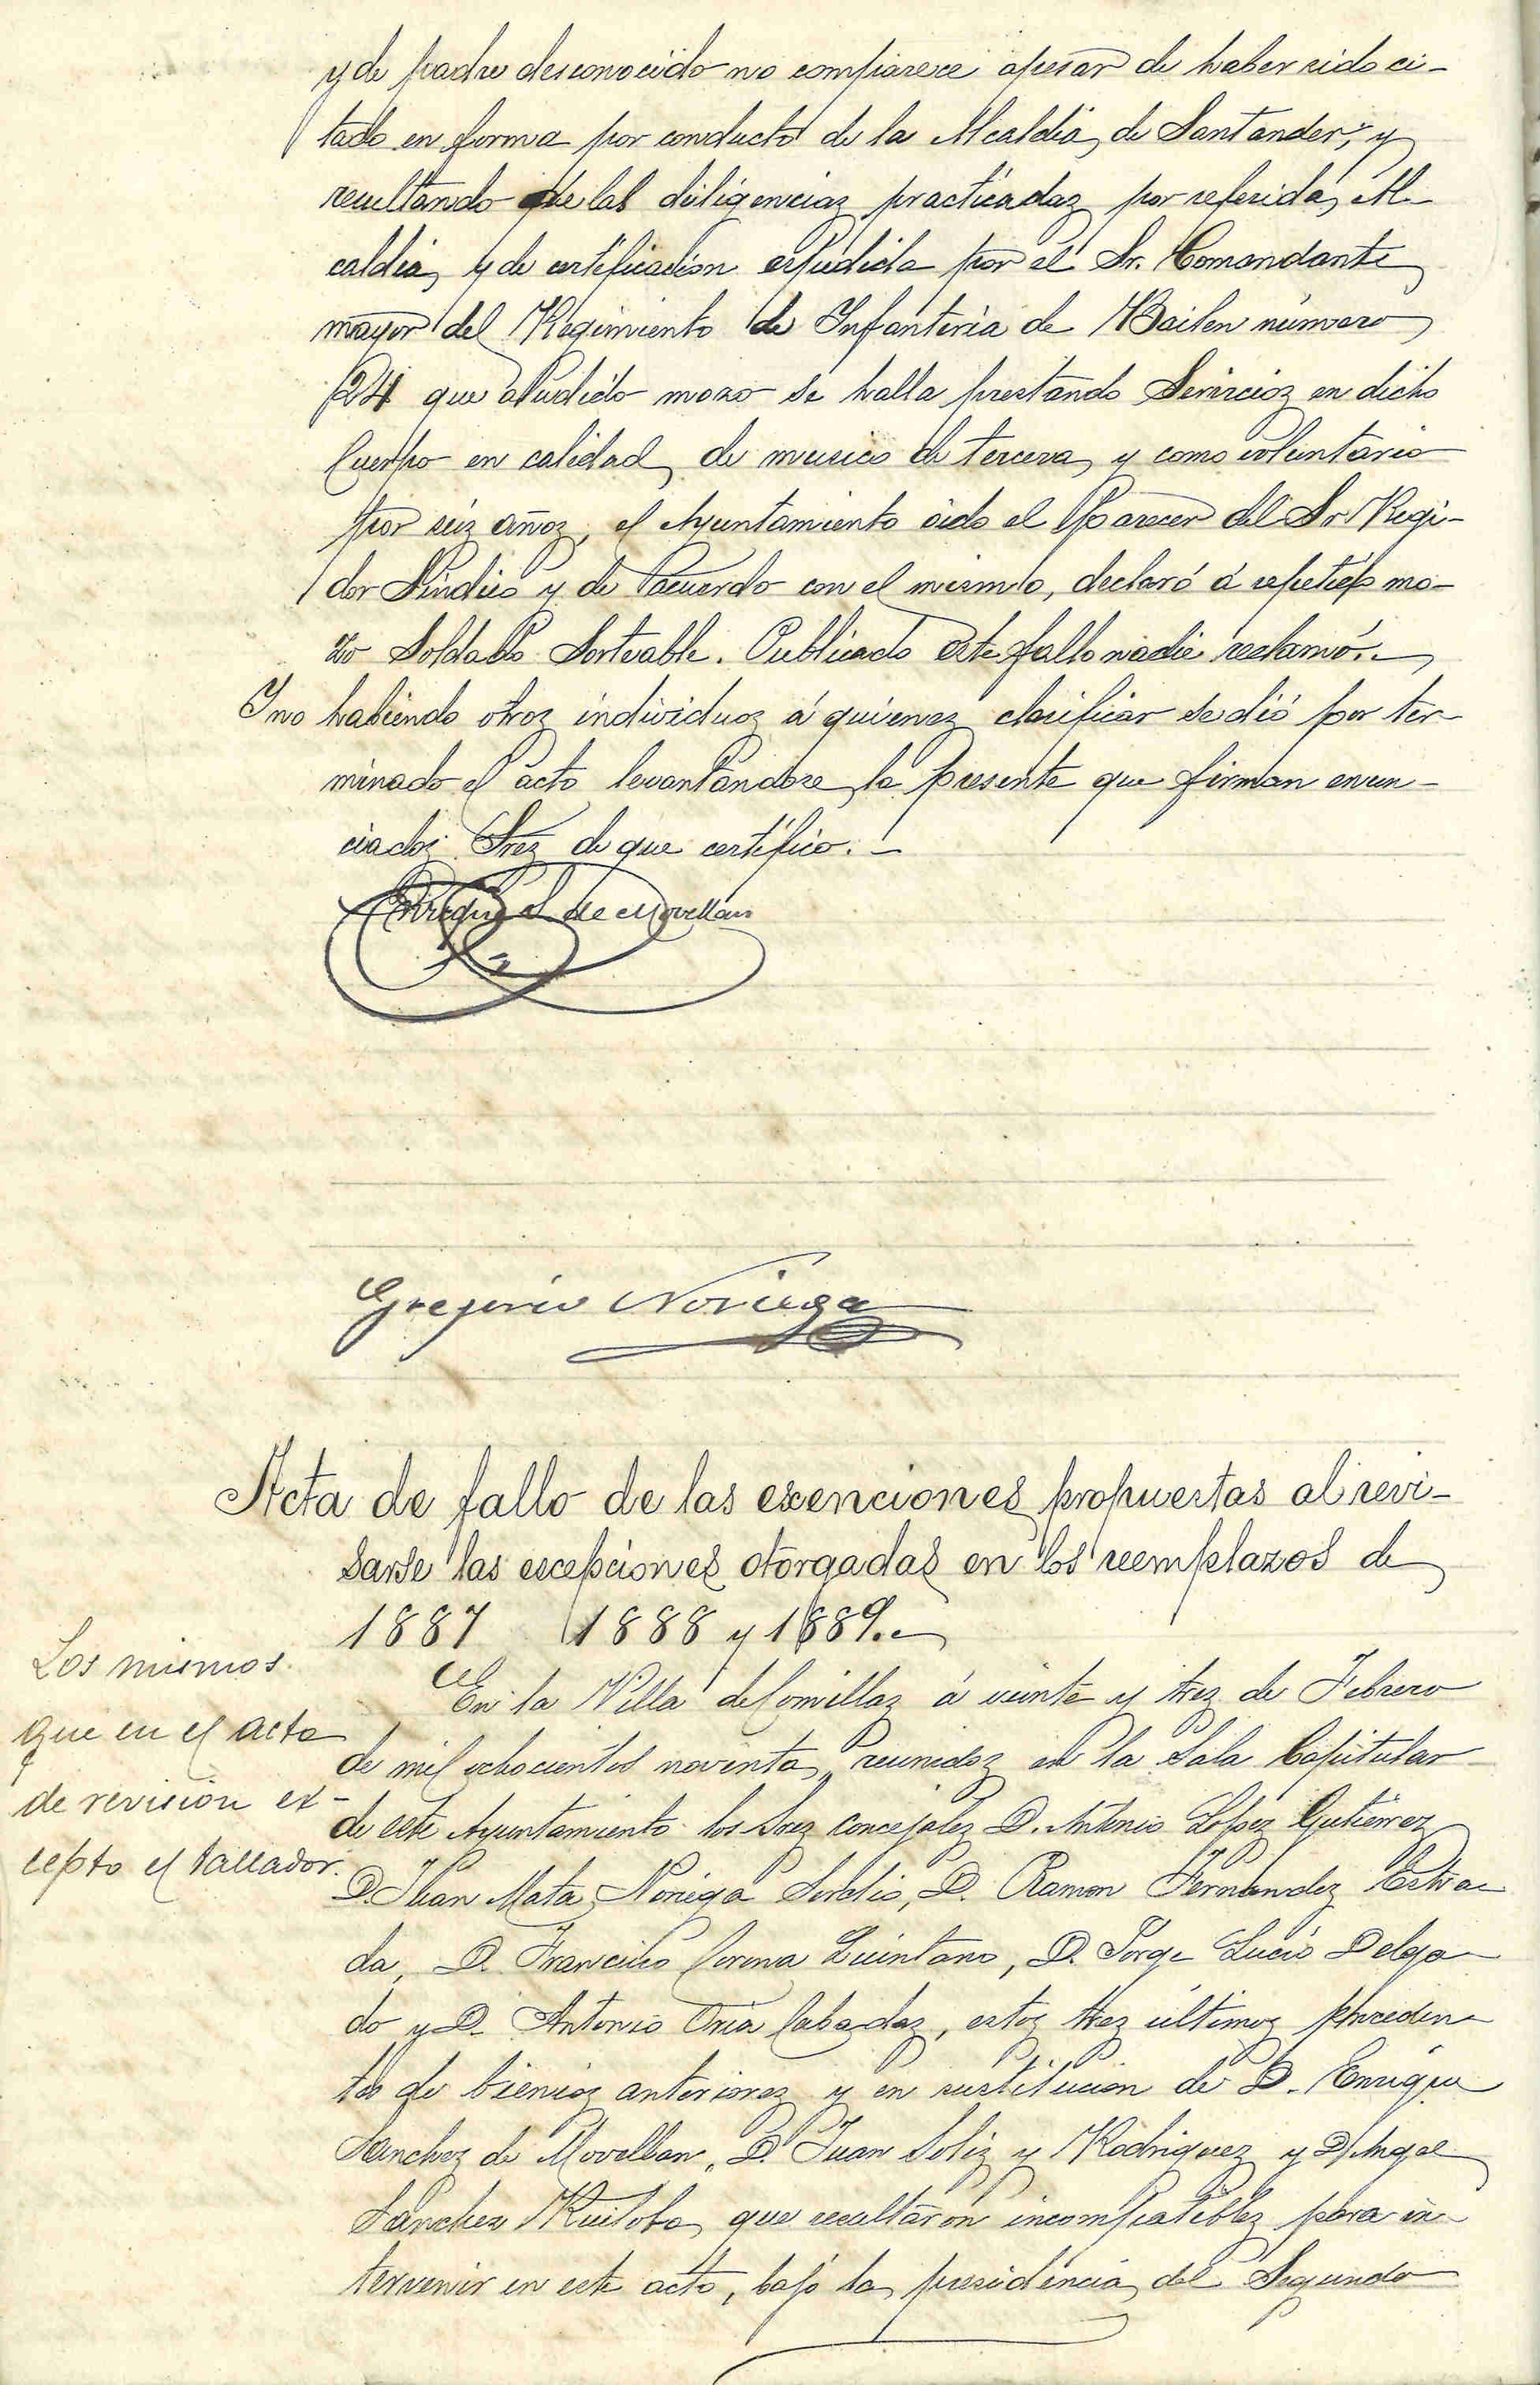 y de padre desconocido no comparece apesar de haber sido ci-
tado en forma por conducto de la Alcaldia de Santander, y
resultando de las diligencias practicadas por referida Al-
caldia, y de certificación espedida por el Sr. Comandante
mayor del Regimiento de Infanteria de Bailen número
24 que aludido mozo se halla prestando Servicios en dicho
Cuerpo en calidad de musico de tercera y como voluntario
por seis años, el Ayuntamiento oido el parecer del Sr Regi-
dor Síndico y de acuerdo con el mismo, declaró á repetido mo-
zo Soldado Sorteable. Publicado este fallo nadie reclamó.-
Y no habiendo otros individuos á quienes clasificar se dió por ter-
minado el acto levantandose la presente que firman enun-
ciados Sres de que certifico.-
Enrique S. de Movellan
Gregorio Noriega
Acta de fallo de las exenciones propuestas al revi-
sarse las escepciones otorgadas en los reemplazos de
1887 1888 y 1889.-
Los mismos
que en el acta
de revision ex-
cepto el tallador.
En la Villa de Comillas á veinte y tres de Febrero
de mil ochocientos noventa, reunidos en la Sala Capitular
de este Ayuntamiento los Sres concejales D. Antonio López Gutierrez
D. Juan Mata Noriega Sordio, D. Ramon Fernandez Estra-
da, D. Francisco Corona Quintana, D. Jorge Lucio Delga-
do y D. Antonio Oria Cabadas, estos tres últimos proceden-
tes de bienios anteriores y en sustitucion de D. Enrique
Sanchez de Movellan, D. Juan Soliz y Rodriguez y D. Angel
Sanchez Ruiloba, que resultaron incompatibles para in-
tervenir en este acto, bajo la presidencia del Segundo